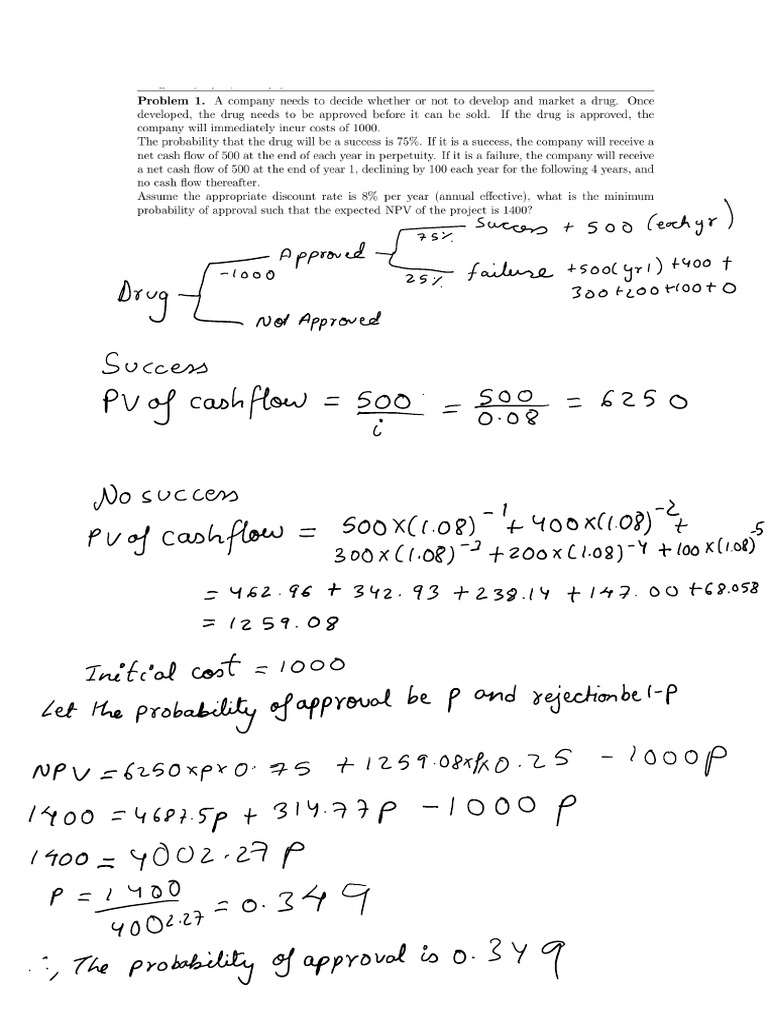 Problem 1. A company needs to decide whether or not to develop and market a drug. Once
developed, the drug needs to be approved before it can be sold. If the drug is approved, the
company will immediately incur costs of 1000.
The probability that the drug will be a success is 75%. If it is a success, the company will receive a
net cash flow of 500 at the end of each year in perpetuity. If it is a failure, the company will receive
a net cash flow of 500 at the end of year 1, declining by 100 each year for the following 4 years, and
no cash flow thereafter.
Assume the appropriate discount rate is 8% per year (annual effective), what is the minimum
probability of approval such that the expected NPV of the project is 1400?
75% Success + 500 (each yr)
Approved
-1000
25% failure +500(yr1) +400 +
300+200+100+0
Drug
Not Approved
Success
PV of cashflow = 500/i = 500/0.08 = 6250
No success
PV of cashflow = 500×(1.08)^-1 + 400×(1.08)^-2 +
300×(1.08)^-3 +200×(1.08)^-4 +100×(1.08)^-5
= 462.96 + 342.93 +238.14 +147.00 +68.058
= 1259.08
Initial cost = 1000
Let the probability of approval be p and rejection be 1-p
NPV = 6250×p×0.75 + 1259.08×p×0.25 - 1000p
1400 = 4687.5p + 314.77p - 1000 p
1400 = 4002.27 p
p = 1400/4002.27 = 0.349
∴, The probability of approval is 0.349